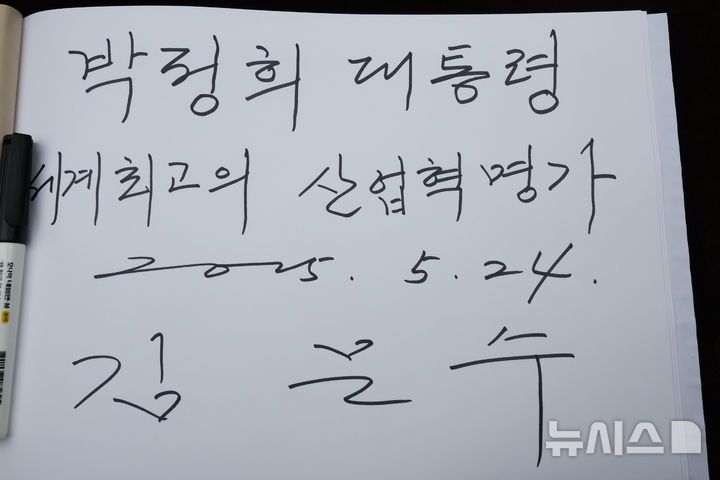 박정희 대통령
세계최고의 산업혁명가
2025. 5. 24.
김문수
뉴시스
모나미 네임펜 M